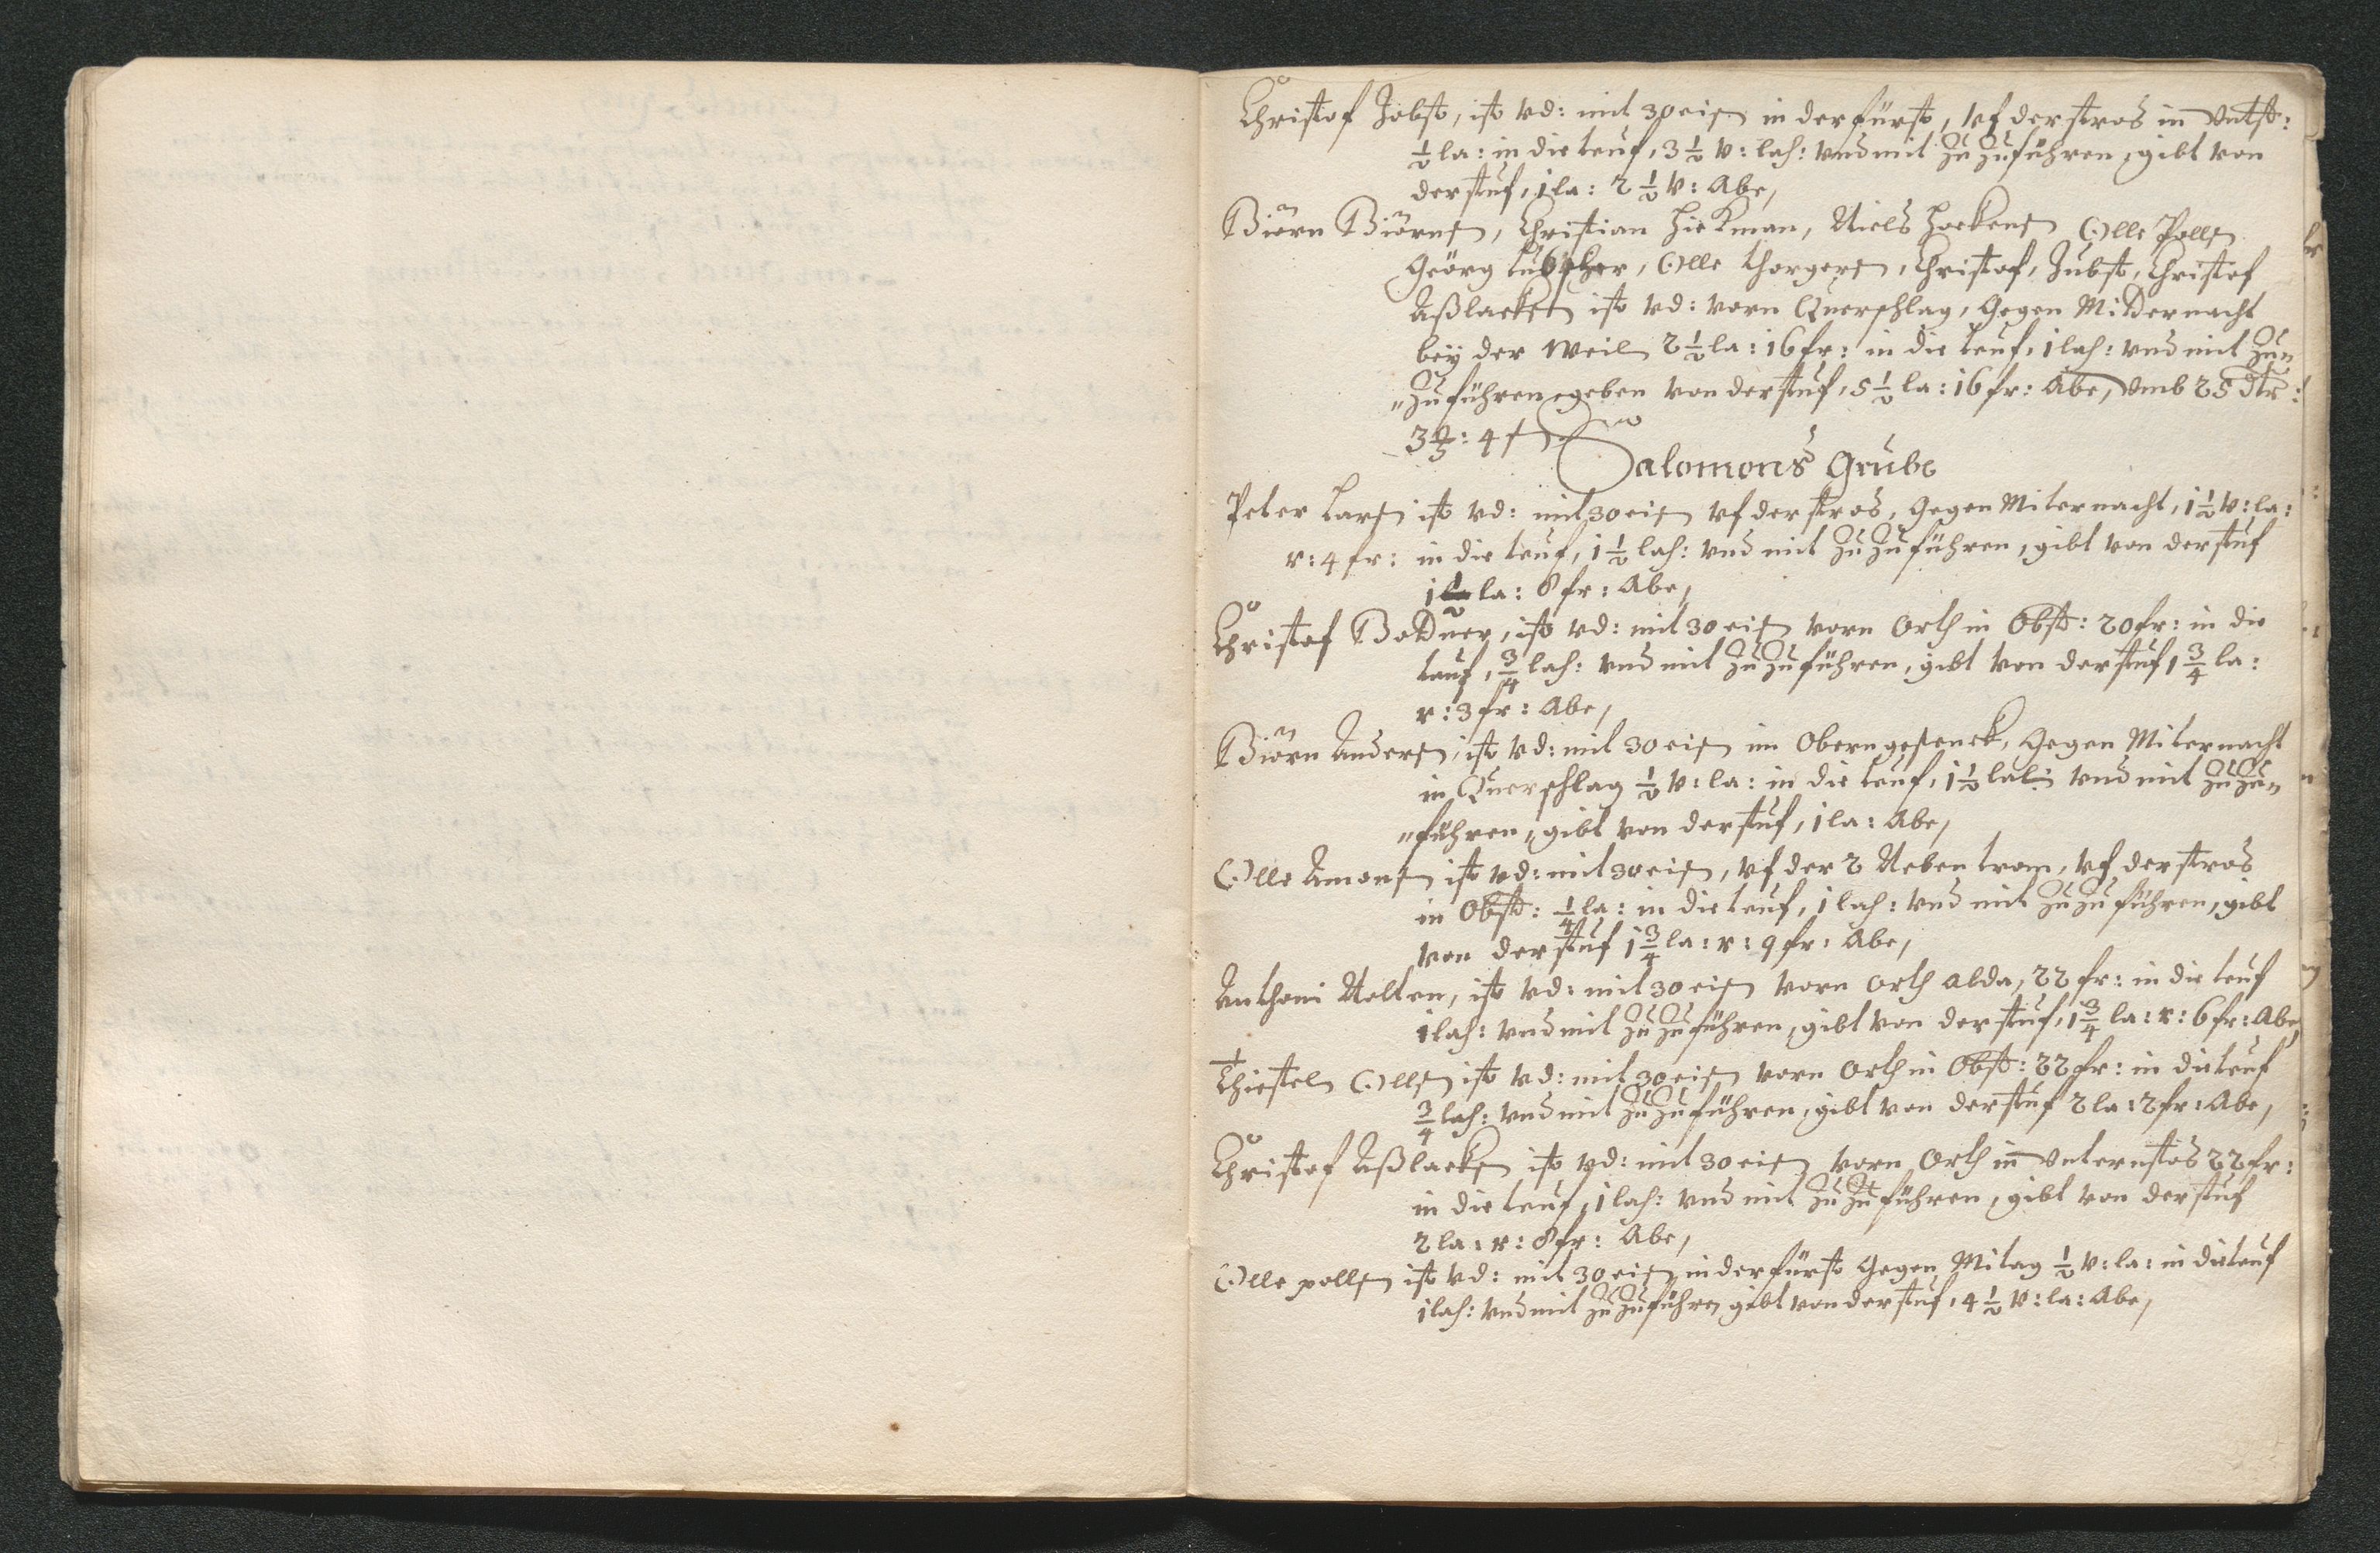 Christof Jobst, ist vd: mit 30 eisn in der fürst, vf der stros in Vntst:
½ la: in die teuf, 3 ½ v: lach: vnd mit Zu Zuführen, gibt von
der stuf, 1 la: 2 ½ v: Abe,
Biörn Biörns, Christian Hickman, Niels Hoekens Olle Polls
Geörg , Olle Thorgers, Christof, Jubst, Christof
Aßlacks ist vd: vorn Querschlag, Gegen Mitternacht
bey der Weil 2 ½ la: 16 fr: in die teuf, 1 lach: vnd mit Zu„
„Zuführen geben von der stuf, 5 ½ la: 16 fr: Abe, Vmb 25 dlr:
3 : 4 s
Salomons Grube
Peter Lars ist vd: mit 30 eisn vf der stros, Gegen Miternacht, 1 ½ v: la:
r: 4 fr: in die teuf, 1 ½ lach: vnd mit Zu Zuführen, gibt von der stuf
1 ½ la: 8 fr: Abe,
Christof Bottner, ist vd: mit 30 eisn vorn Orth in Obst: 20 fr: in die
teuf, ¾ lach: vnd mit Zu Zuführen, gibt von der stuf 1 ¾ la:
r: 3 fr: Abe,
Biörn Anders, ist vd: mit 30 eisn im Obern gesenck, Gegen Miternacht
in Querschlag ½ v: la: in die teuf, 1 ½ lach: vnd mit Zu Zu„
„führen, gibt von der stuf, 1 la: Abe,
Olle Amons ist vd: mit 30 eisn, vf der 2 Neben trom, vf der stros
in Obst: ¼ la: in die teuf, 1 lach: vnd mit Zu Zuführen, gibt
von der stuf 1 ¾ la: r: 9 fr: Abe,
Anthoni Nelten, ist vd: mit 30 eisn vorn Orth alda, 22 fr: in die teuf
1 lach: vnd mit Zu Zuführen, gibt von der stuf, 1 ¾ la: r: 6 fr: Abe,
Chiestel Olls ist vd: mit 30 eisn vorn Orth in Obst: 22 fr: in die teuf
¾ lach: vnd mit Zu Zuführen, gibt von der stuf 2 la: 2 fr: Abe,
Christof Aßlacks ist vd: mit 30 eisn vorn Orth in Vnternstos 22 fr:
in die teuf, 1 lach: vnd mit Zu Zuführen, gibt von der stuf
2 la: r: 8 fr: Abe,
Olle polls ist vd: mit 30 eisn in der fürst Gegen Mitag ½ v: la: in die teuf
1 lach: vnd mit Zu Zuführen gibt von der stuf, 4 ½ v: la: Abe,